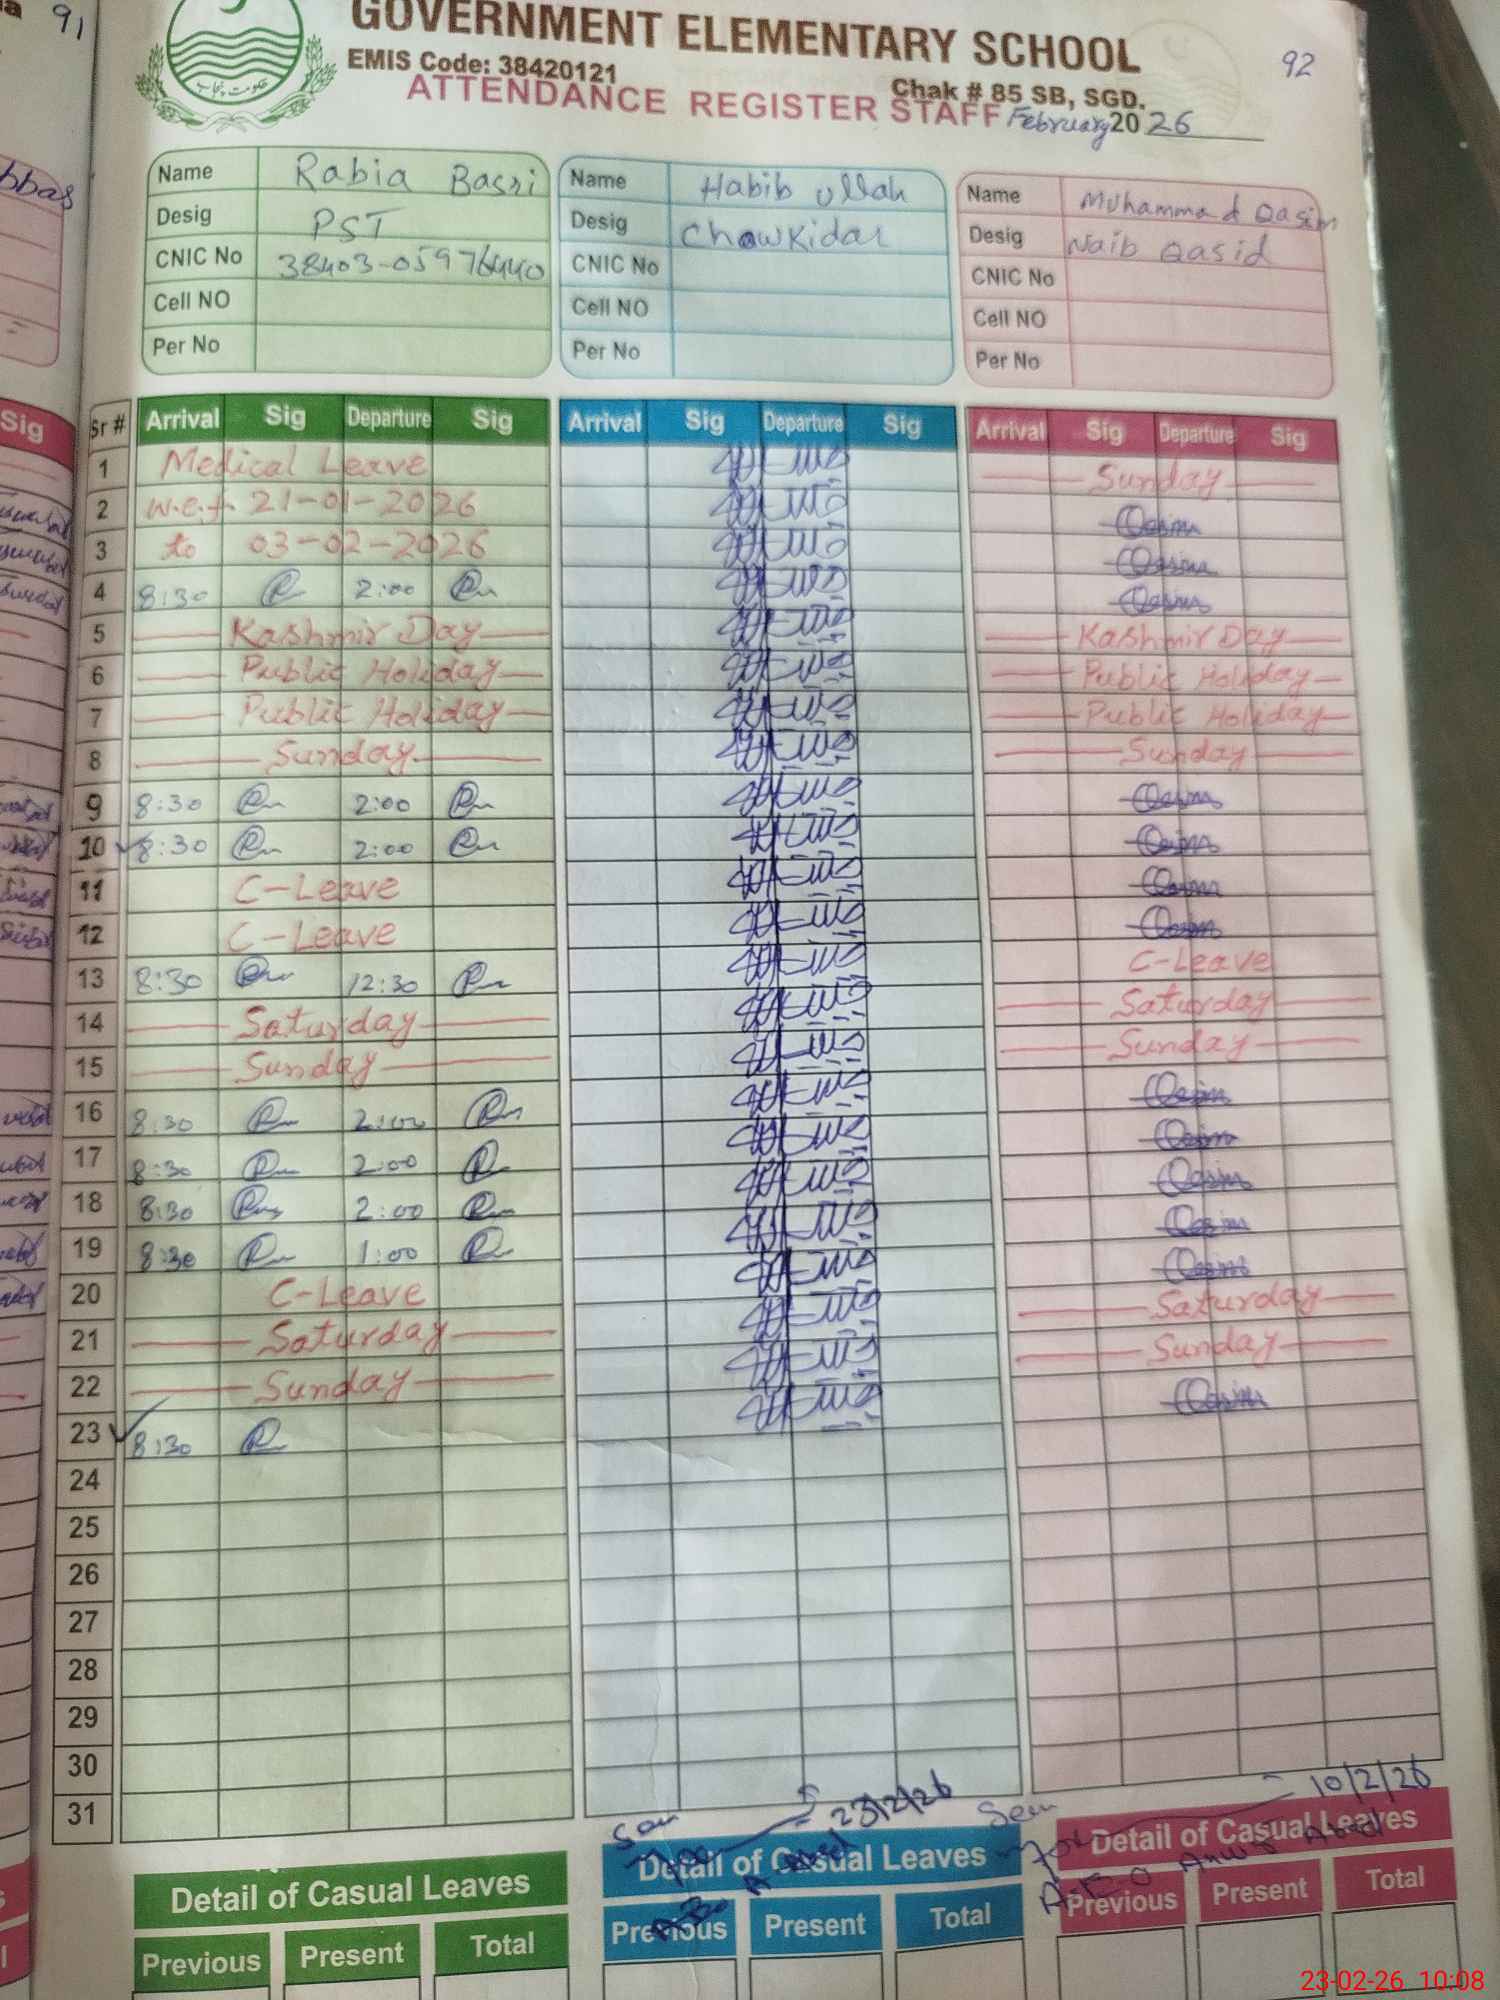 91
GOVERNMENT ELEMENTARY SCHOOL
92
EMIS Code: 38420121
Chak # 85 SB, SGD.
ATTENDANCE REGISTER STAFF February 2026
حکومت پنجاب
Name Rabia Basri
Desig PST
CNIC No 38403-05976440
Cell NO
Per No
Name Habib Ullah
Desig Chowkidar
CNIC No
Cell NO
Per No
Name Muhammad Qasim
Desig Naib Qasid
CNIC No
Cell NO
Per No
Sig
Sr # Arrival Sig Departure Sig Arrival Sig Departure Sig Arrival Sig Departure Sig
1 Medical Leave Sunday
2 w.e.f. 21-01-2026 Qasim
3 to 03-02-2026 Qasim
4 8:30 2:00 Qasim
5 Kashmir Day Kashmir Day
6 Public Holiday Public Holiday
7 Public Holiday Public Holiday
8 Sunday Sunday
9 8:30 2:00 Qasim
10 8:30 2:00 Qasim
11 C-Leave Qasim
12 C-Leave Qasim
13 8:30 12:30 C-Leave
14 Saturday Saturday
15 Sunday Sunday
16 8:30 2:00 Qasim
17 8:30 2:00 Qasim
18 8:30 2:00 Qasim
19 8:30 1:00 Qasim
20 C-Leave Qasim
21 Saturday Saturday
22 Sunday Sunday
23 8:30 Qasim
24
25
26
27
28
29
30
31
23/2/26
10/2/26
Detail of Casual Leaves
Previous Present Total
Detail of Casual Leaves
Previous Present Total
Detail of Casual Leaves
Previous Present Total
23-02-26 10:08